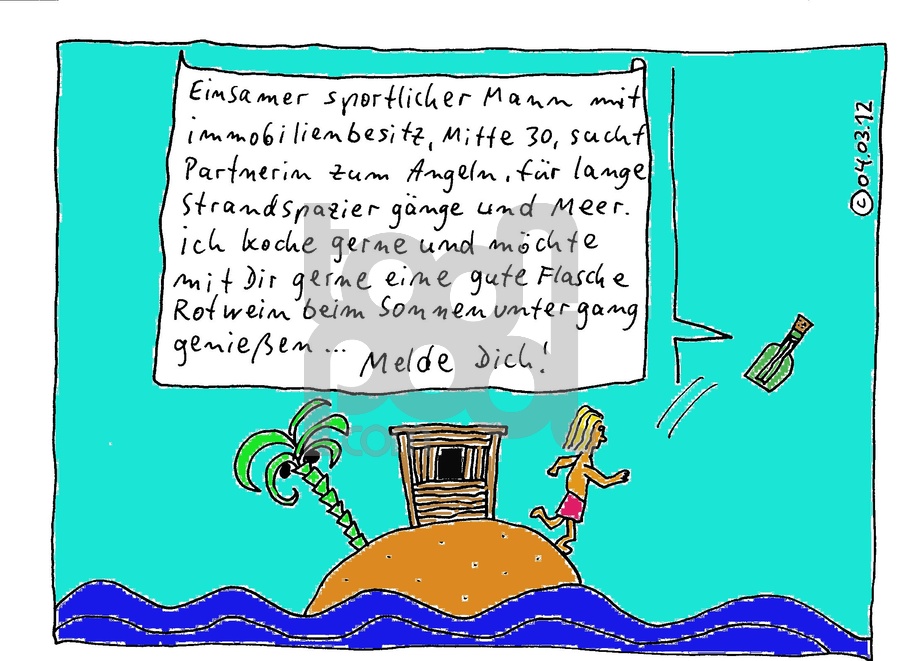 Einsamer sportlicher Mann mit
immobilienbesitz, Mitte 30, sucht
Partnerin zum Angeln, für lange
Strandspazier gänge und Meer.
ich koche gerne und möchte
mit Dir gerne eine gute Flasche
Rotwein beim Sonnenuntergang
genießen...
Melde Dich!
©04.03.12
toonpool
.com